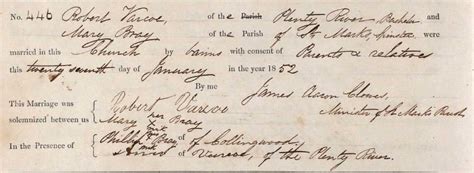 No. 446 Robert Varcoe of the Parish Plenty River, and
Mary Bray of the Parish of St Marks were
married in this Church by banns with consent of Parents & relatives
this twenty seventh day of January in the year 1852
By me James Aaron Clowes,
Minister of St Marks Parish
This Marriage was solemnized between us { Robert Varcoe
Mary her x mark Bray
In the Presence of { Phillip x mark Bray of Collingwood
of the Plenty River.